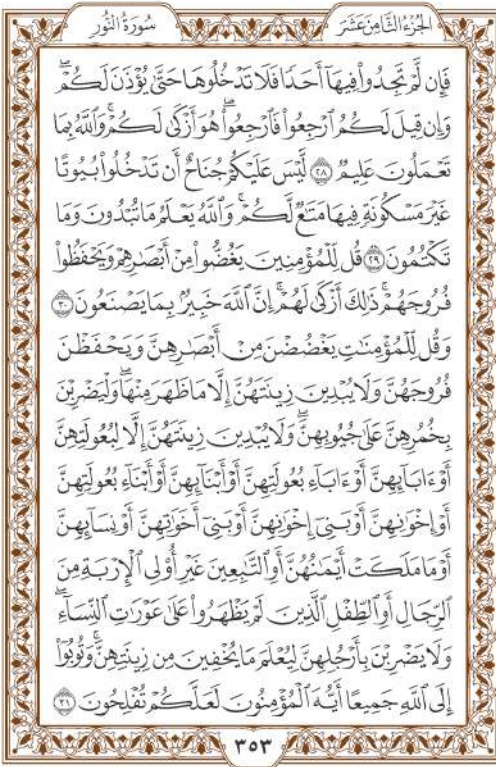 الجُزْءُ الثَّامِنَ عَشَرَ
سُورَةُ النُّورِ
فَإِن لَّمْ تَجِدُواْ فِيهَآ أَحَدًا فَلَا تَدْخُلُوهَا حَتَّىٰ يُؤْذَنَ لَكُمْۖ
وَإِن قِيلَ لَكُمُ ٱرْجِعُواْ فَٱرْجِعُواْۖ هُوَ أَزْكَىٰ لَكُمْۚ وَٱللَّهُ بِمَا
تَعْمَلُونَ عَلِيمٌ ٢٨ لَّيْسَ عَلَيْكُمْ جُنَاحٌ أَن تَدْخُلُواْ بُيُوتًا
غَيْرَ مَسْكُونَةٍ فِيهَا مَتَٰعٌ لَّكُمْۚ وَٱللَّهُ يَعْلَمُ مَا تُبْدُونَ وَمَا
تَكْتُمُونَ ٢٩ قُل لِّلْمُؤْمِنِينَ يَغُضُّواْ مِنْ أَبْصَٰرِهِمْ وَيَحْفَظُواْ
فُرُوجَهُمْۚ ذَٰلِكَ أَزْكَىٰ لَهُمْۚ إِنَّ ٱللَّهَ خَبِيرٌۢ بِمَا يَصْنَعُونَ ٣٠
وَقُل لِّلْمُؤْمِنَٰتِ يَغْضُضْنَ مِنْ أَبْصَٰرِهِنَّ وَيَحْفَظْنَ
فُرُوجَهُنَّ وَلَا يُبْدِينَ زِينَتَهُنَّ إِلَّا مَا ظَهَرَ مِنْهَاۖ وَلْيَضْرِبْنَ
بِخُمُرِهِنَّ عَلَىٰ جُيُوبِهِنَّۖ وَلَا يُبْدِينَ زِينَتَهُنَّ إِلَّا لِبُعُولَتِهِنَّ
أَوْ ءَابَآئِهِنَّ أَوْ ءَابَآءِ بُعُولَتِهِنَّ أَوْ أَبْنَآئِهِنَّ أَوْ أَبْنَآءِ بُعُولَتِهِنَّ
أَوْ إِخْوَٰنِهِنَّ أَوْ بَنِيٓ إِخْوَٰنِهِنَّ أَوْ بَنِيٓ أَخَوَٰتِهِنَّ أَوْ نِسَآئِهِنَّ
أَوْ مَا مَلَكَتْ أَيْمَٰنُهُنَّ أَوِ ٱلتَّٰبِعِينَ غَيْرِ أُوْلِي ٱلْإِرْبَةِ مِنَ
ٱلرِّجَالِ أَوِ ٱلطِّفْلِ ٱلَّذِينَ لَمْ يَظْهَرُواْ عَلَىٰ عَوْرَٰتِ ٱلنِّسَآءِۖ
وَلَا يَضْرِبْنَ بِأَرْجُلِهِنَّ لِيُعْلَمَ مَا يُخْفِينَ مِن زِينَتِهِنَّۚ وَتُوبُوٓاْ
إِلَى ٱللَّهِ جَمِيعًا أَيُّهَ ٱلْمُؤْمِنُونَ لَعَلَّكُمْ تُفْلِحُونَ ٣١
٣٥٣